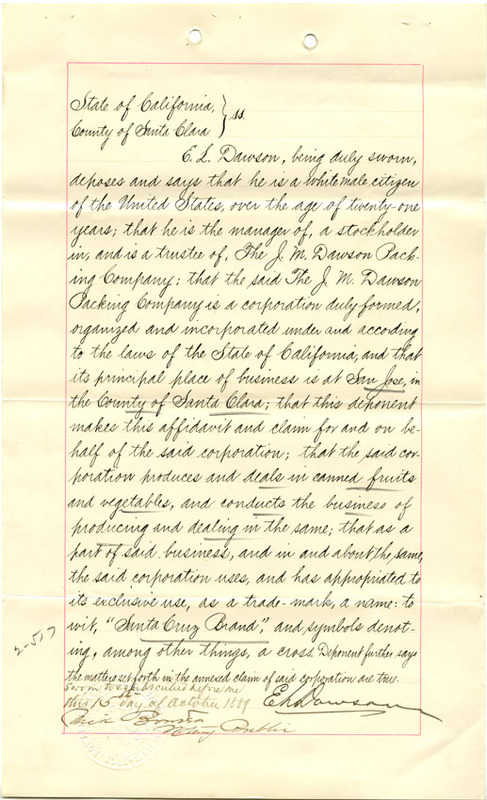 State of California, } ss.
County of Santa Clara
E. L. Dawson, being duly sworn,
deposes and says that he is a white male citizen
of the United States, over the age of twenty-one
years; that he is the manager of, a stockholder
in, and is a trustee of, The J. M. Dawson Pack-
ing Company; that the said The J. M. Dawson
Packing Company is a corporation duly formed,
organized and incorporated under and according
to the laws of the State of California, and that
its principal place of business is at San Jose, in
the County of Santa Clara; that this deponent
makes this affidavit and claim for and on be-
half of the said corporation; that the said cor-
poration produces and deals in canned fruits
and vegetables, and conducts the business of
producing and dealing in the same; that as a
part of said business, and in and about the same,
the said corporation uses, and has appropriated to
its exclusive use, as a trade-mark, a name: to
wit, "Santa Cruz Brand", and symbols denot-
ing, among other things, a cross. Deponent further says
the matters set forth in the annexed claim of said corporation are true.
Sworn to & subscribed before me
this 15 day of October 1889
E L Dawson
Notary Public
2-517